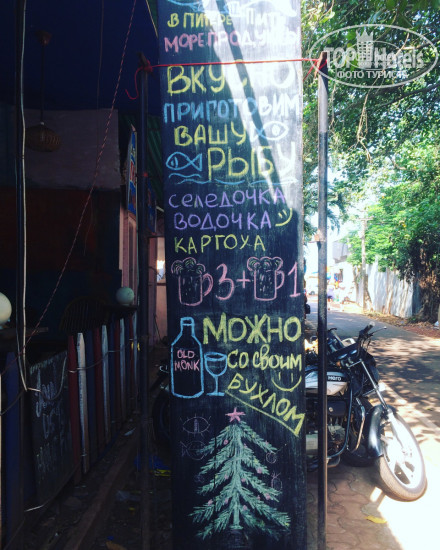 В ПИТЕРЕ ПИТЬ
МОРЕПРОДУКТЫ
ВКУСНО
ПРИГОТОВИМ
ВАШУ
РЫБУ
СЕЛЕДОЧКА
ВОДОЧКА
КАРГОХА
3+1
МОЖНО
СО СВОИМ
БУХЛОМ
OLD
MONK
TopHotels
ФОТО ТУРИСТА